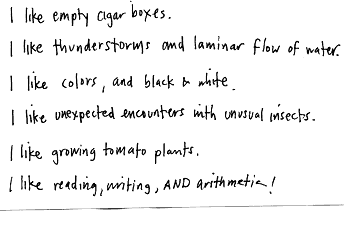 I like empty cigar boxes.
I like thunderstorms and laminar flow of water.
I like colors, and black & white.
I like unexpected encounters with unusual insects.
I like growing tomato plants.
I like reading, writing, AND arithmetic!